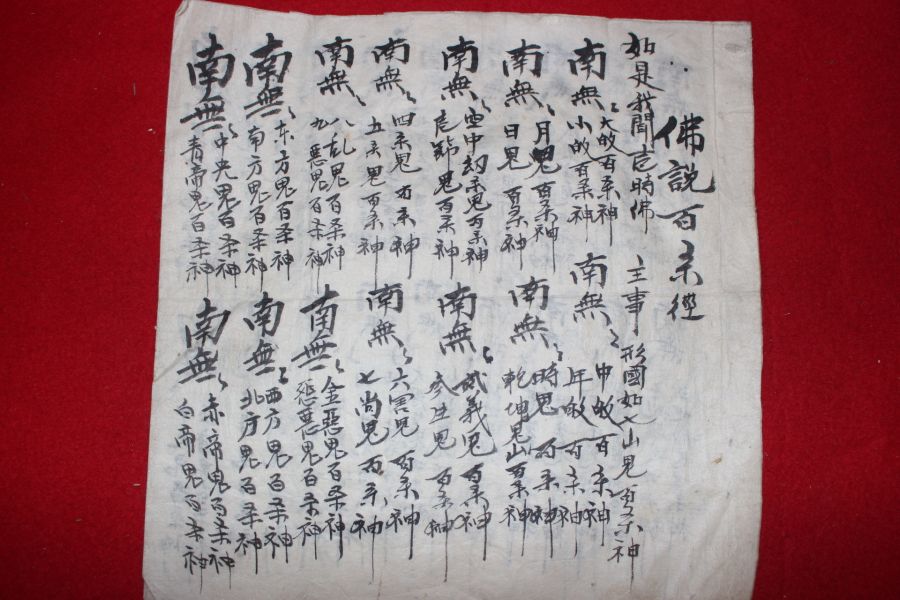 佛說百杀徑
如是我聞 時佛 主事 形國如七山見百杀神
南無 大 百杀神
小 百杀神
南無 中 百杀神
年 百杀神
南無 月鬼百杀神
日鬼百杀神
南無 時鬼百杀神
乾坤鬼山百杀神
南無 空中 杀鬼百杀神
鬼百杀神
南無 義鬼百杀神
鬼百杀神
南無 四杀鬼百杀神
五 鬼百杀神
南無 六害鬼百杀神
七尚鬼百杀神
南無 八乱鬼百杀神
九惡鬼百杀神
南無 金惡鬼百杀神
惡鬼百杀神
南無 东方鬼百杀神
南方鬼百杀神
南無 西方鬼百杀神
北方鬼百杀神
南無 中央鬼百杀神
青帝鬼百杀神
南無 赤帝鬼百杀神
白帝鬼百杀神